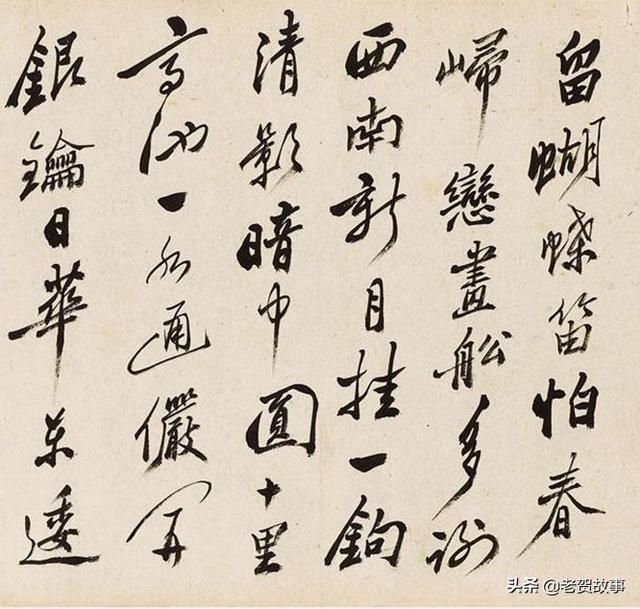 留蝴蝶笛怕春
歸戀畫船多謝
西南新月挂一鉤
清影暗中圓十里
高池一水通儼開
銀鑰日華東逶
头条 @老贺故事